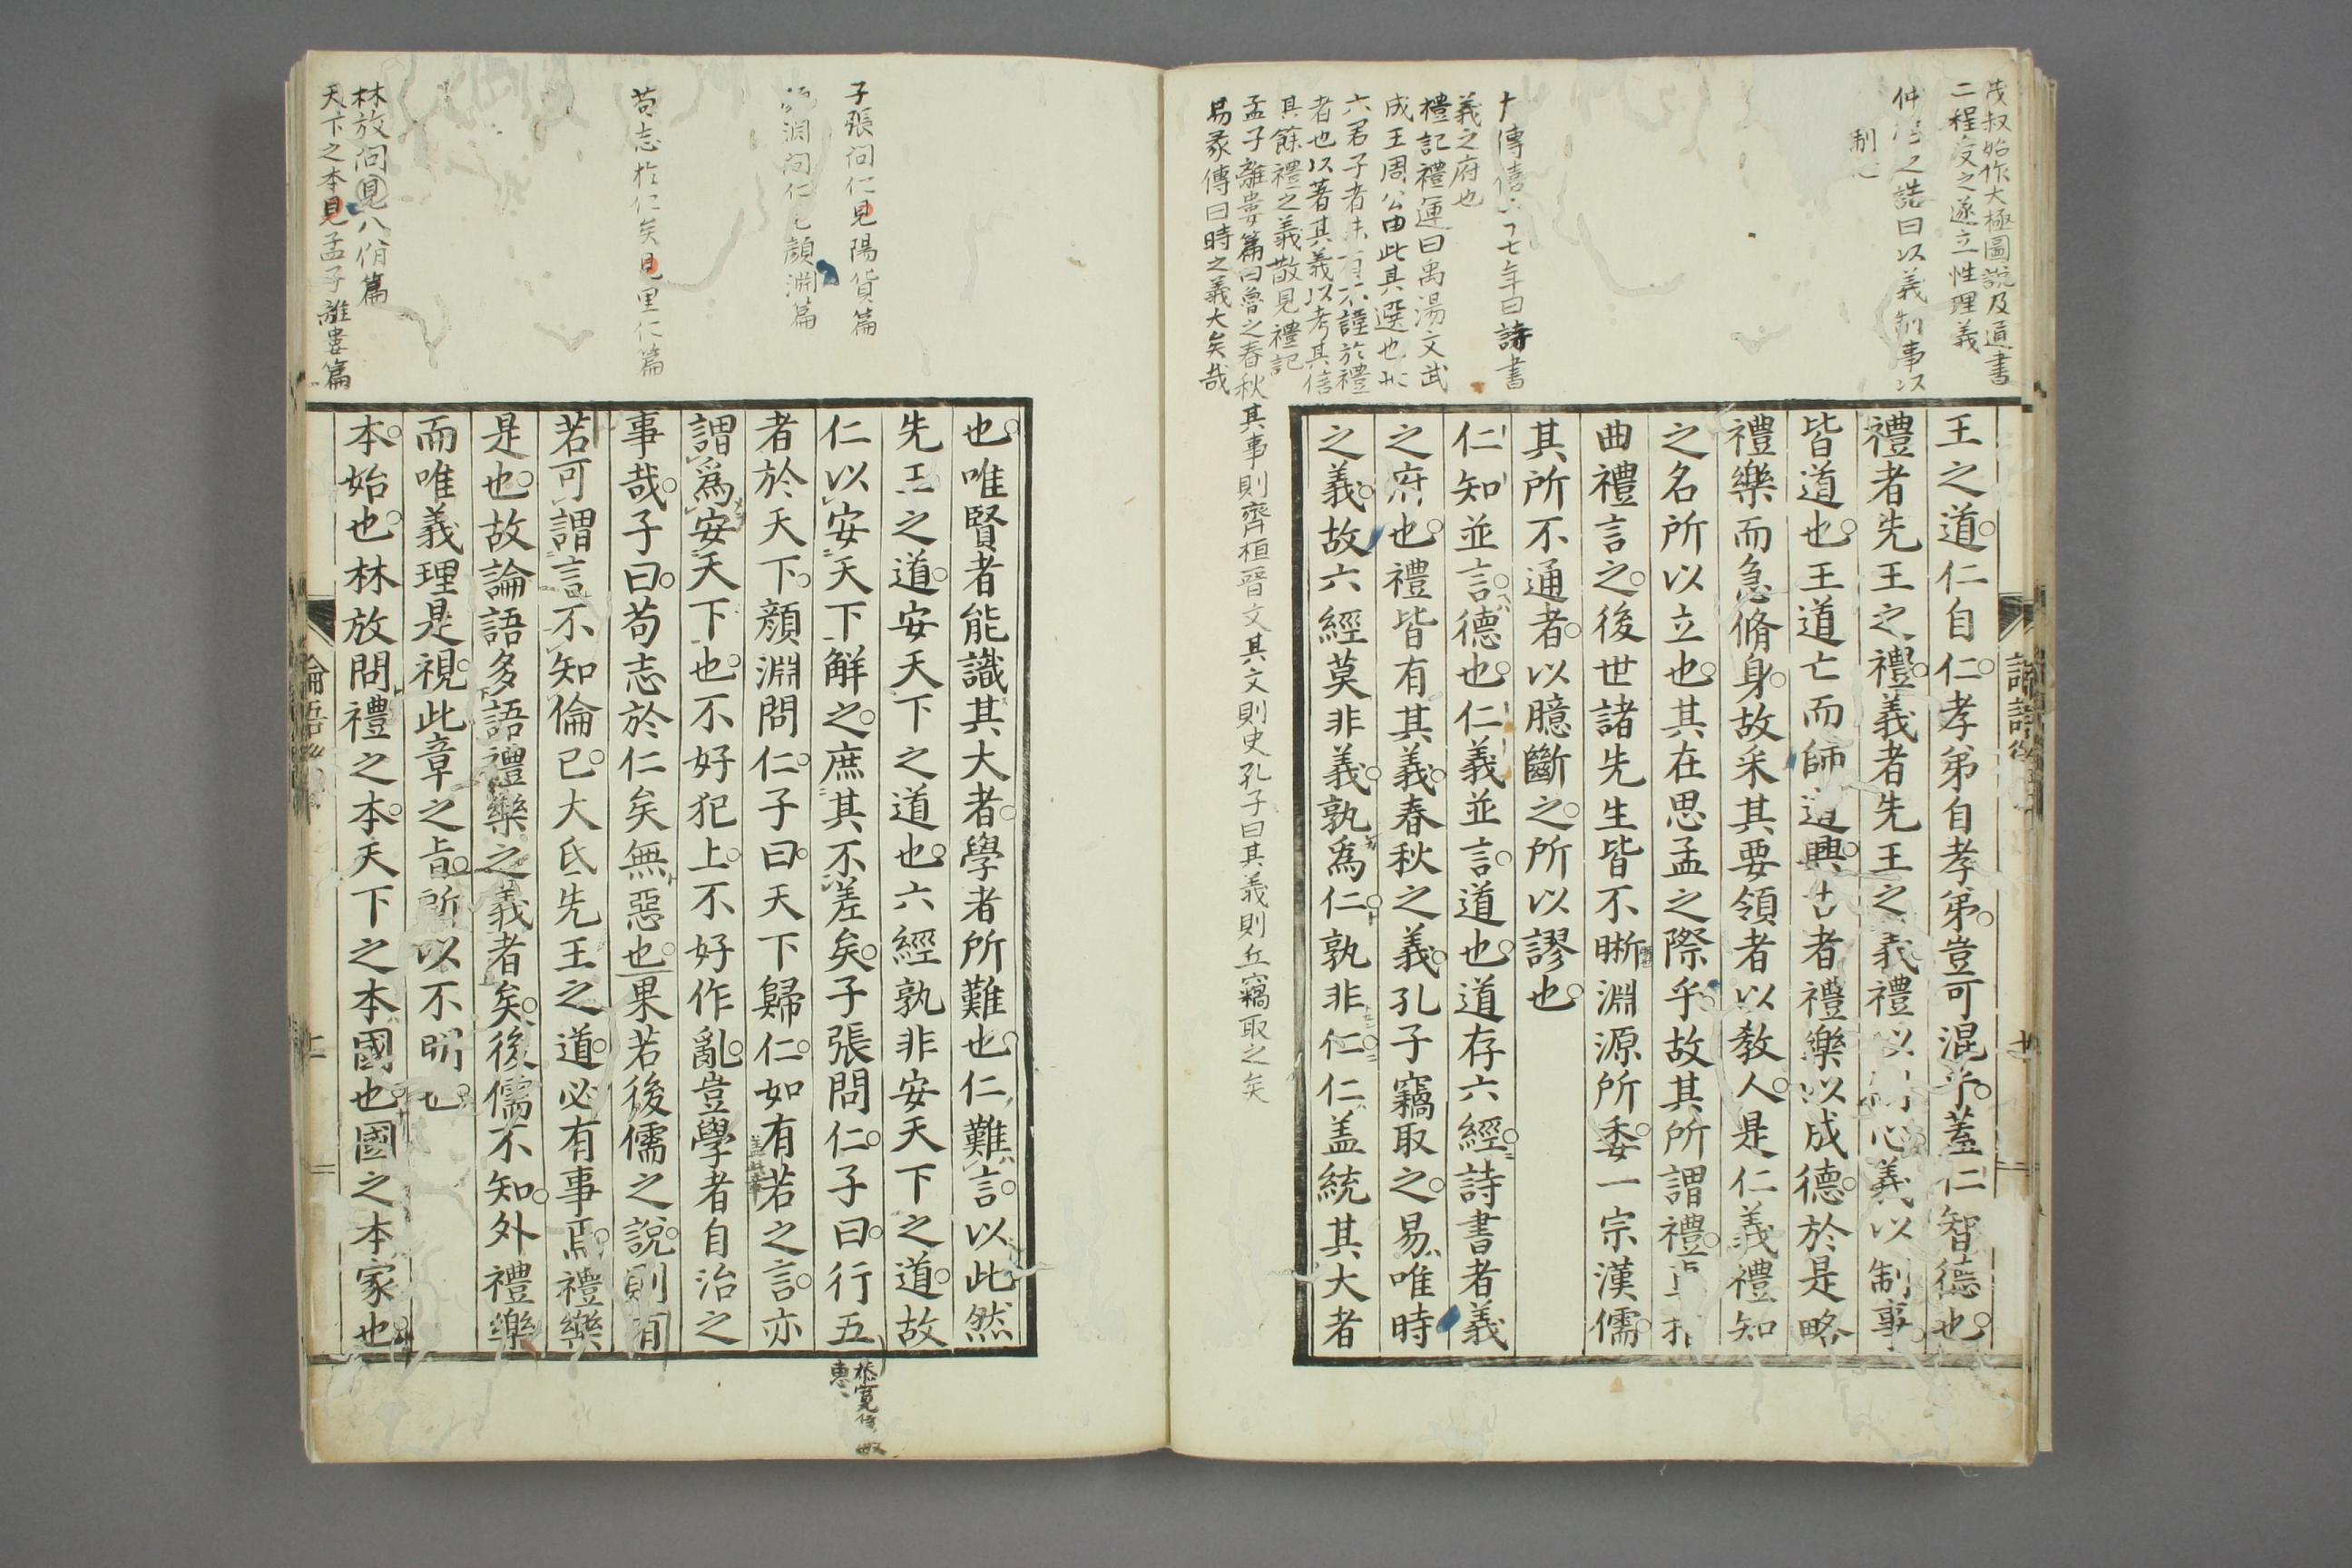 茂叔始作大極圖說及通書
二程受之遂立性理義
仲之誥曰以義制事以
制心
傳僖七年曰詩書
義之府也
禮記禮運曰禹湯文武
成王周公由此其選也此
六君子者未有不謹於禮
者也以著其義以考其信
其餘禮之義散見禮記
孟子離婁篇曰魯之春秋其事則齊桓晉文其文則史孔子曰其義則丘竊取之矣
易彖傳曰時之義大矣哉
王之道仁自仁孝弟自孝弟豈可混乎蓋仁智德也
禮者先王之禮義者先王之義禮以制心義以制事
皆道也王道亡而師道興古者禮樂以成德於是略
禮樂而急脩身故采其要領者以教人是仁義禮知
之名所以立也其在思孟之際乎故其所謂禮
曲禮言之後世諸先生皆不晰淵源所委一宗漢儒
其所不通者以臆斷之所以謬也
仁知並言德也仁義並言道也道存六經詩書者義
之府也禮皆有其義春秋之義孔子竊取之易唯時
之義故六經莫非義孰為仁孰非仁仁盖統其大者
也唯賢者能識其大者學者所難也仁難言以此然
先王之道安天下之道也六經孰非安天下之道故
仁以安天下解之庶其不差矣子張問仁子曰行五
者於天下顏淵問仁子曰天下歸仁如有若之言亦
謂爲安天下也不好犯上不好作亂豈學者自治之
事哉子曰苟志於仁矣無惡也果若後儒之說則有
若可謂言不知倫已大氐先王之道必有事焉禮樂
是也故論語多語禮樂之義者矣後儒不知外禮樂
而唯義理是視此章之旨所以不明也
本始也林放問禮之本天下之本國也國之本家也
子張問仁見陽貨篇
淵問仁見顏淵篇
苟志於仁矣見里仁篇
林放問見八佾篇
天下之本見孟子離婁篇
恭寬信敏
惠